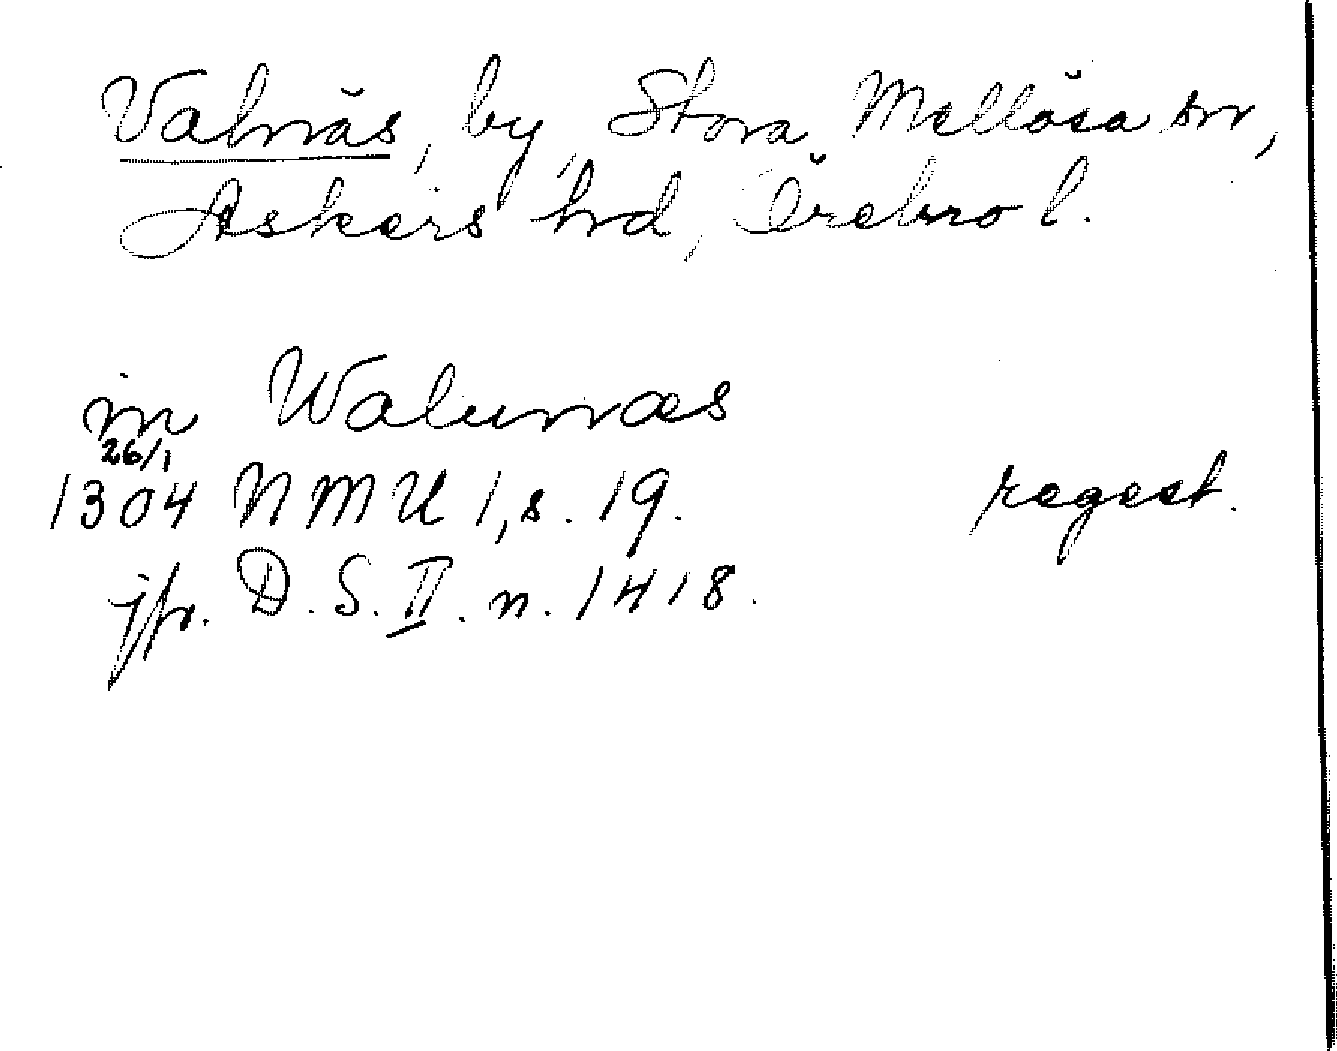 Valnäs, by, Stora Mellösa sn,
Askers hd, Örebro l.
in Walunæs
26/1
1304 NMU 1, s. 19. regest.
jfr. D. S. II. n. 1418.